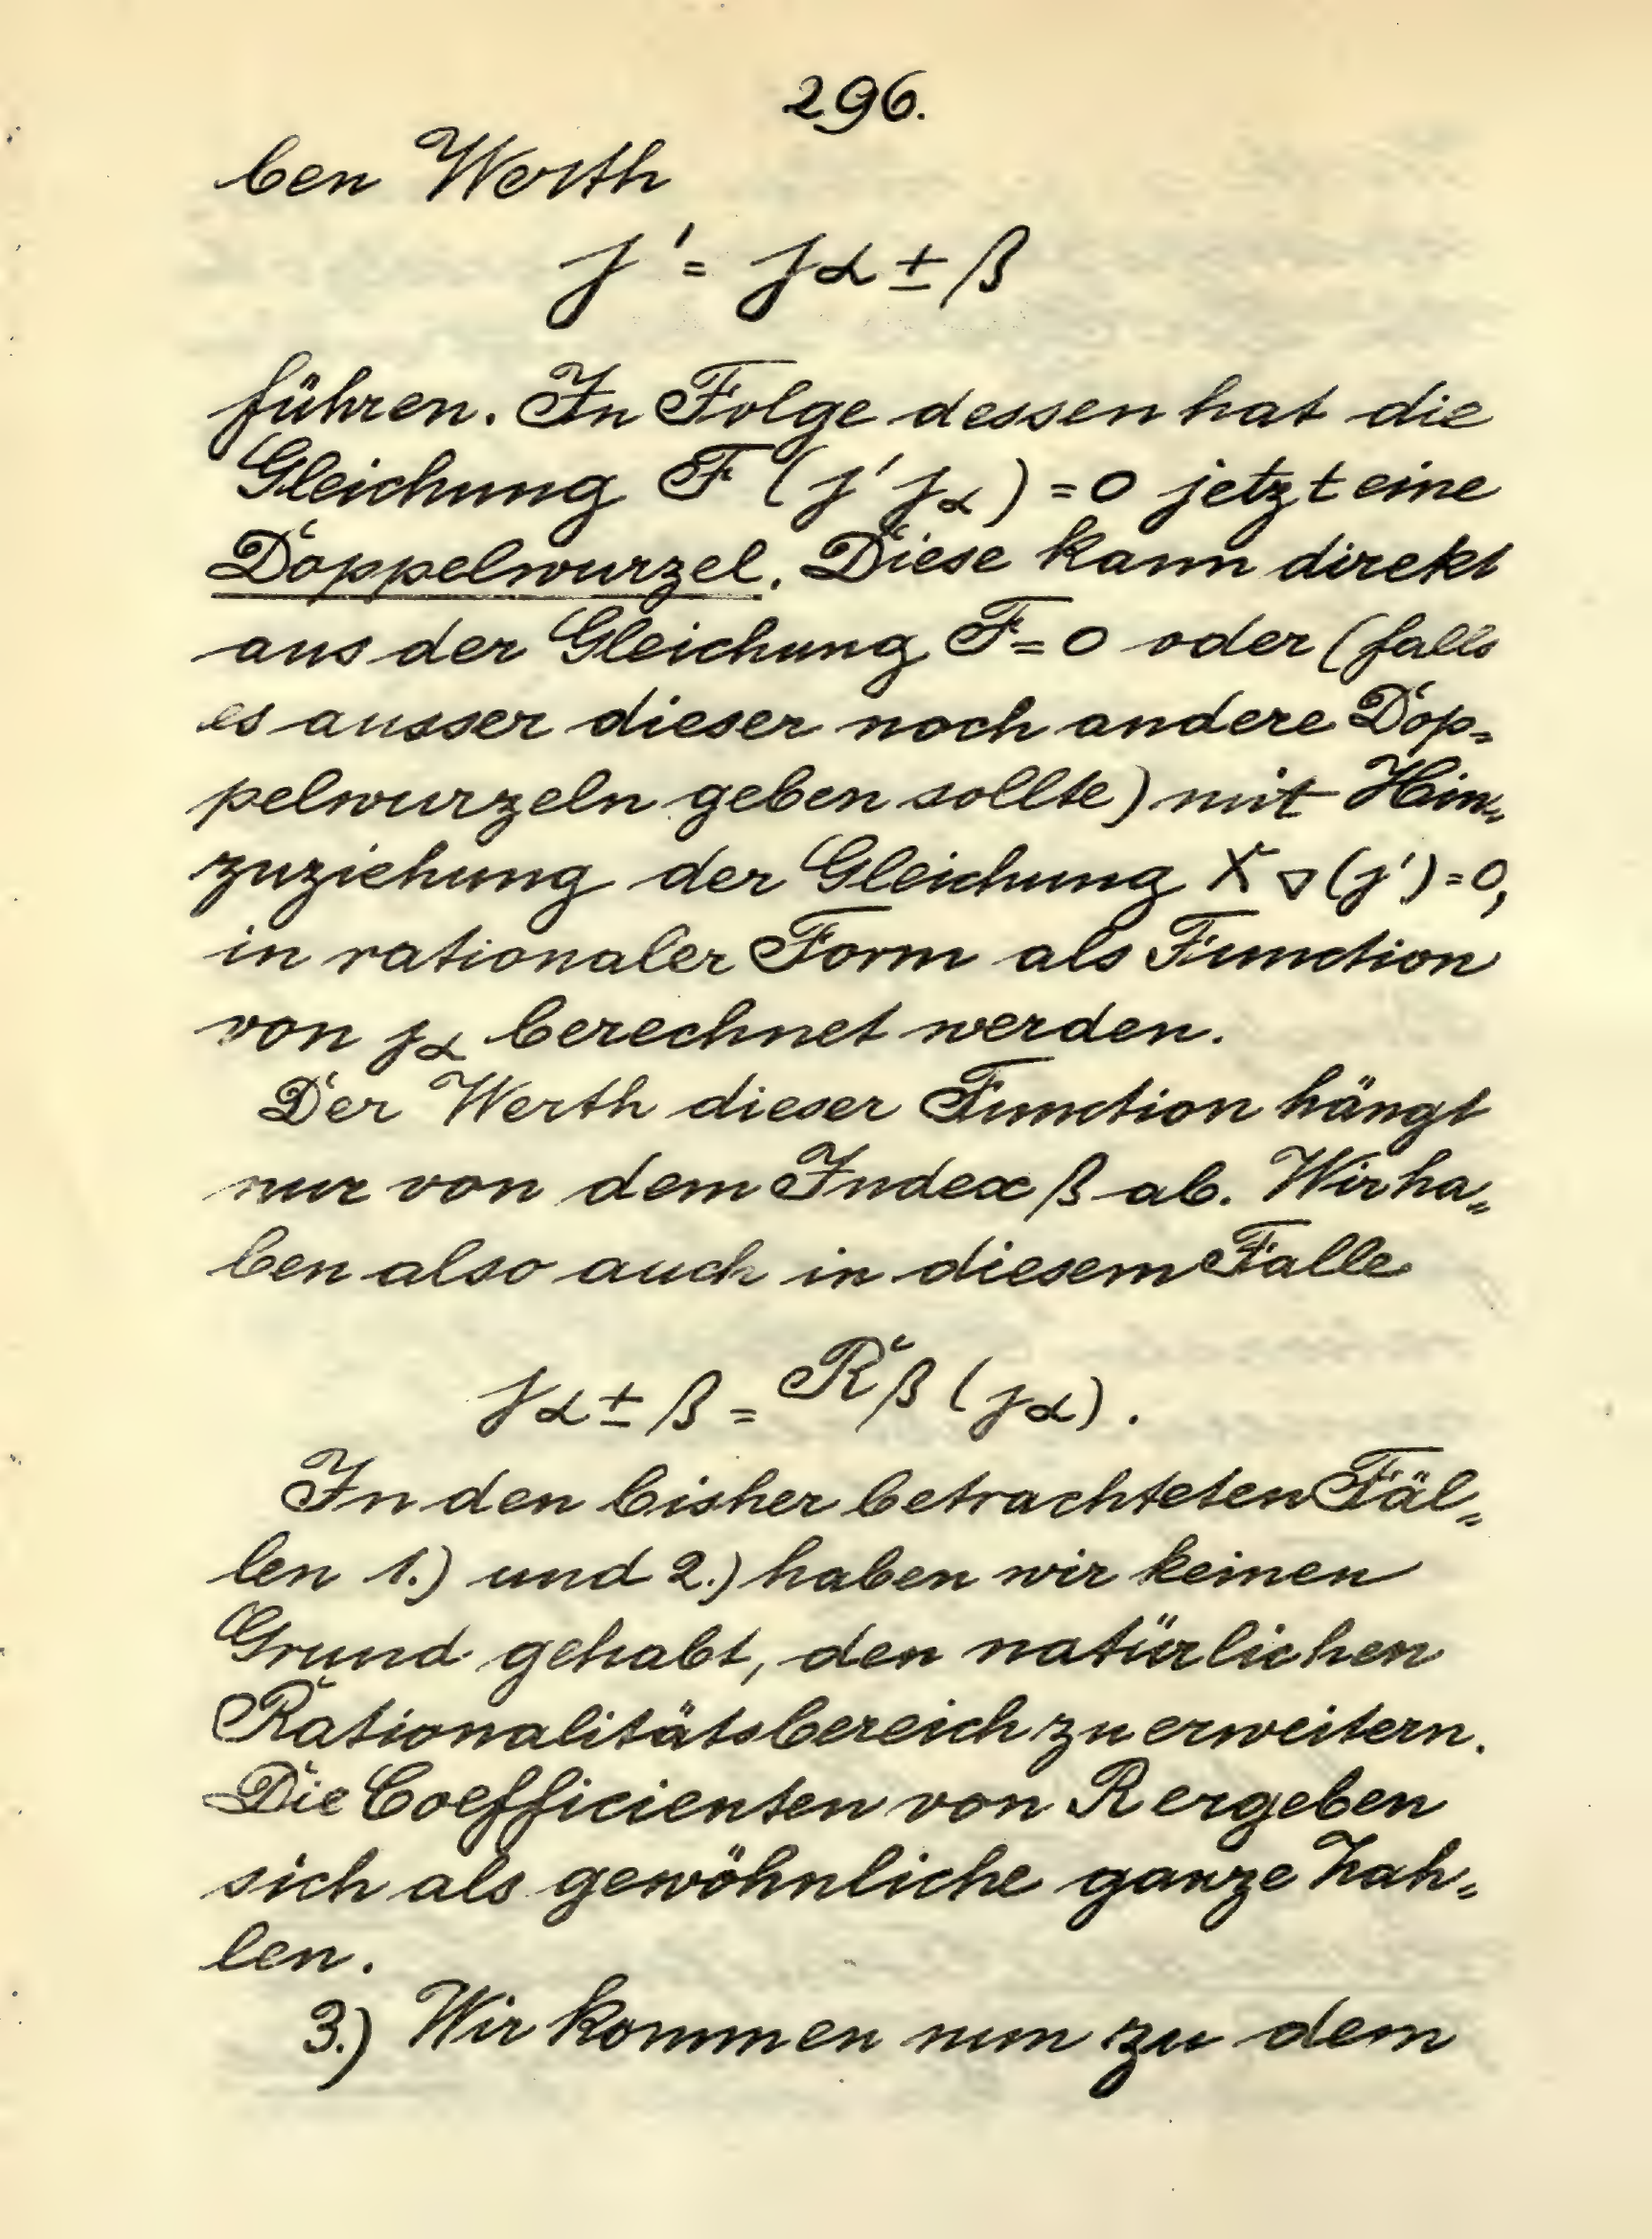 296.
ben Werth
j' = jα ± β
führen. In Folge dessen hat die
Gleichung F (j' jα) = 0 jetzt eine
Doppelwurzel. Diese kann direkt
aus der Gleichung F = 0 oder (falls
es ausser dieser noch andere Dop=
pelwurzeln geben sollte) mit Hin=
zuziehung der Gleichung X ▽ (j') = 0,
in rationaler Form als Function
von jα berechnet werden.
Der Werth dieser Function hängt
nur von dem Index β ab. Wir ha=
ben also auch in diesem Falle
jα ± β = Rβ (jα).
In den bisher betrachteten Fäl=
len 1.) und 2.) haben wir keinen
Grund gehabt, den natürlichen
Rationalitätsbereich zu erweitern.
Die Coefficienten von R ergeben
sich als gewöhnliche ganze Zah=
len.
3.) Wir kommen nun zu dem